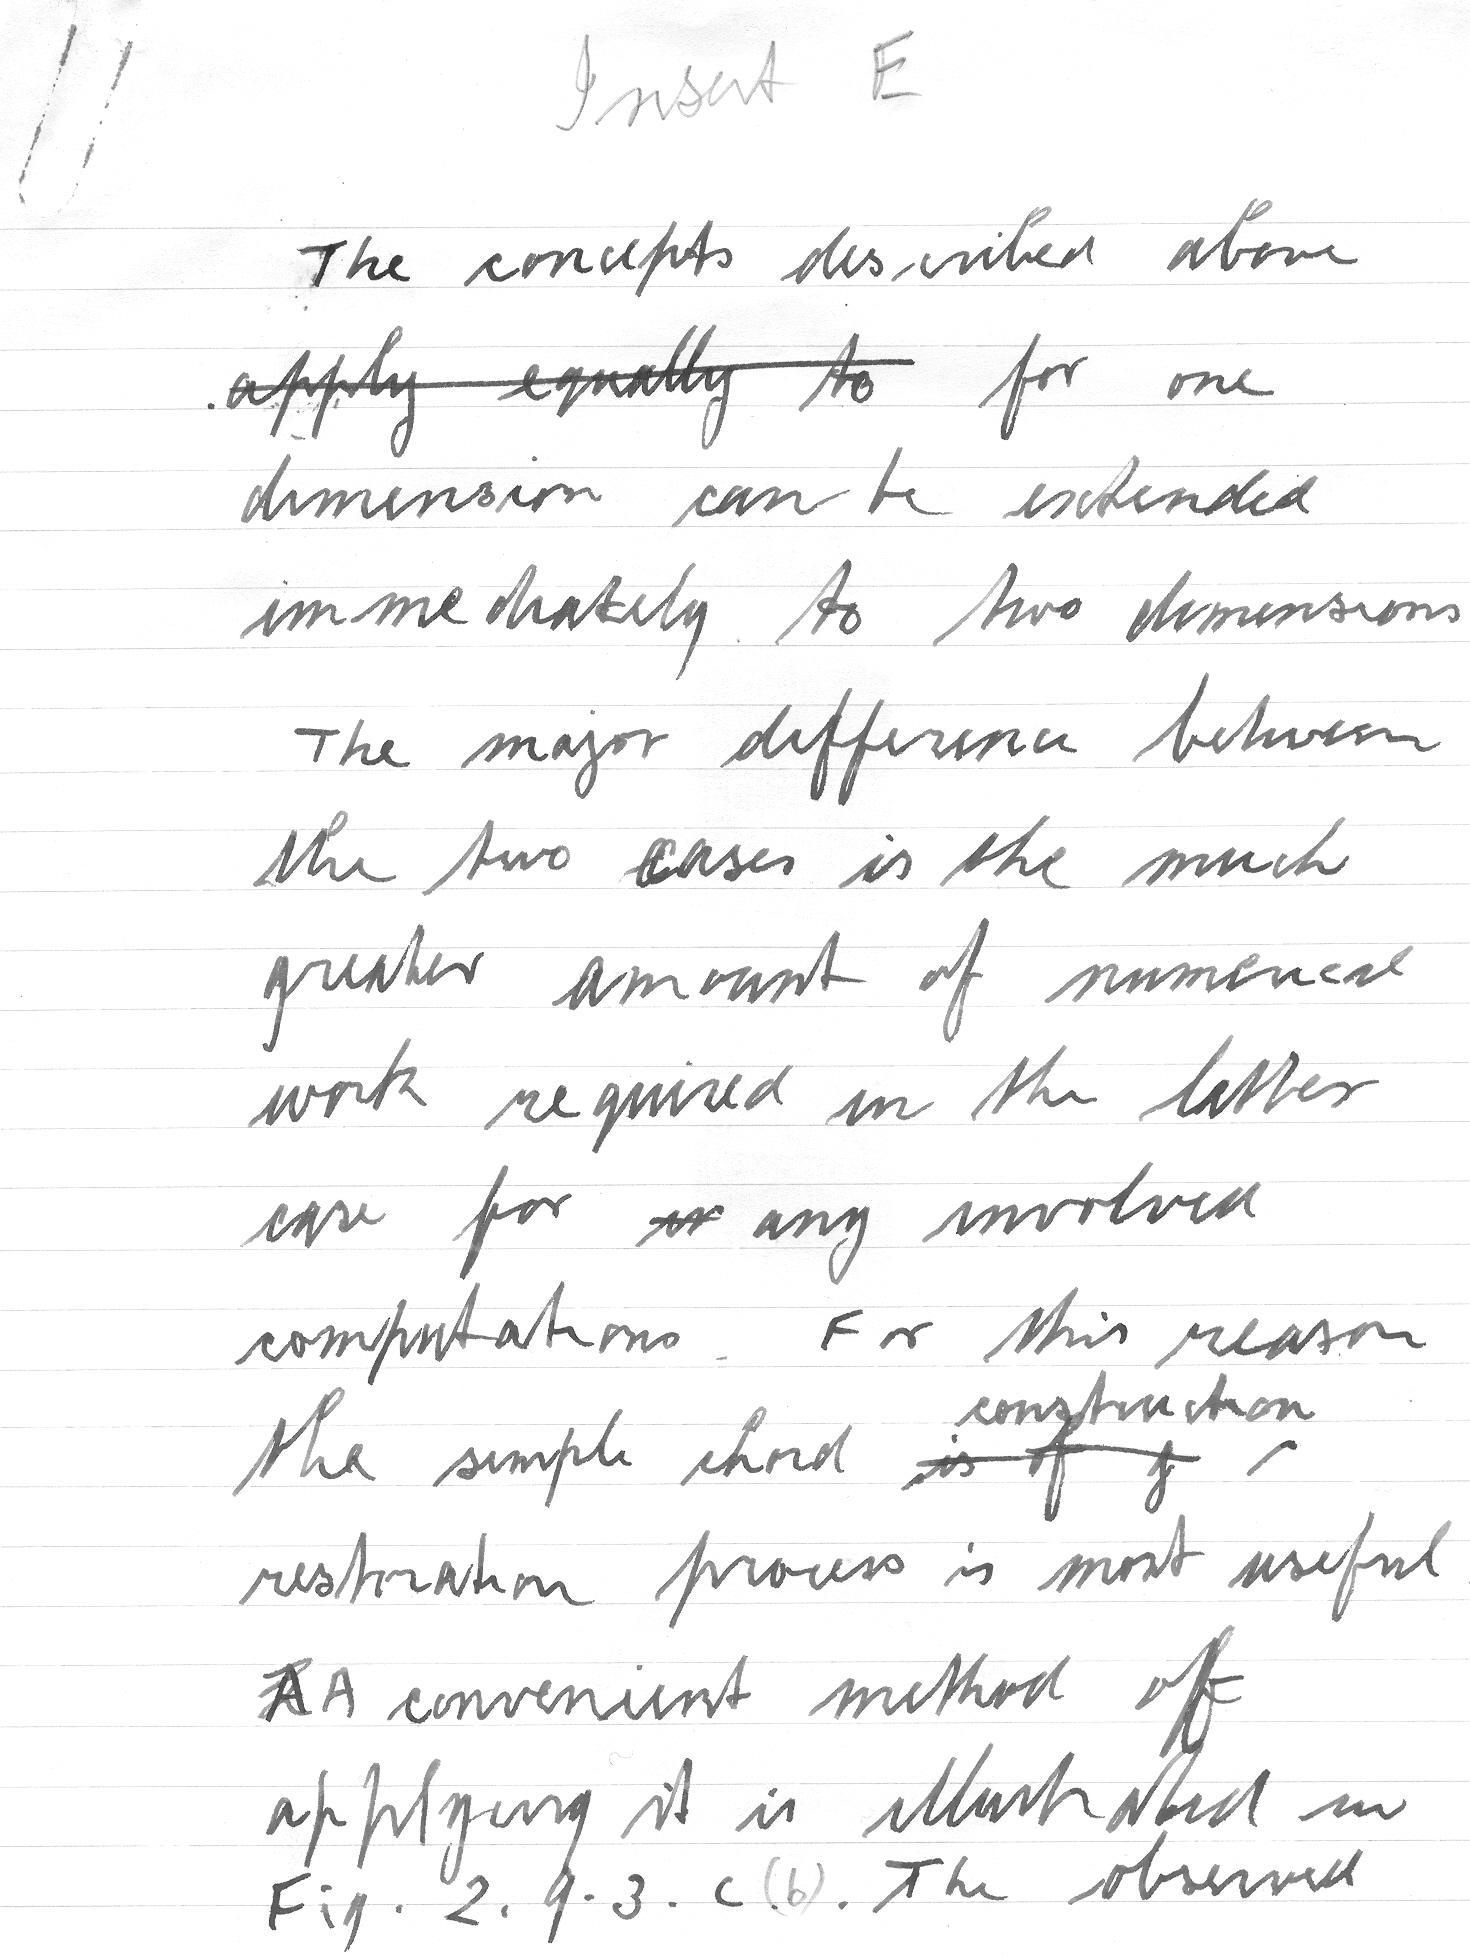 Insert E
The concepts described above
apply equally to for one
dimension can be extended
immediately to two dimensions
The major difference between
the two cases is the much
greater amount of numerical
work required in the latter
case for or any involved
computations. For this reason
construction
the simple chord is of g
restoration process is most useful
A A convenient method of
applying it is illustrated in
Fig. 2.9.3.c(b). The observed